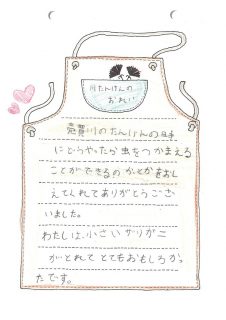 川たんけんの
おれい
川のたんけんの時
にどうやったら虫をつかまえる
ことができるのかとかをおし
えてくれてありがとうござ
いました。
わたしは、小さいザリガニ
がとれてとてもおもしろかっ
たです。